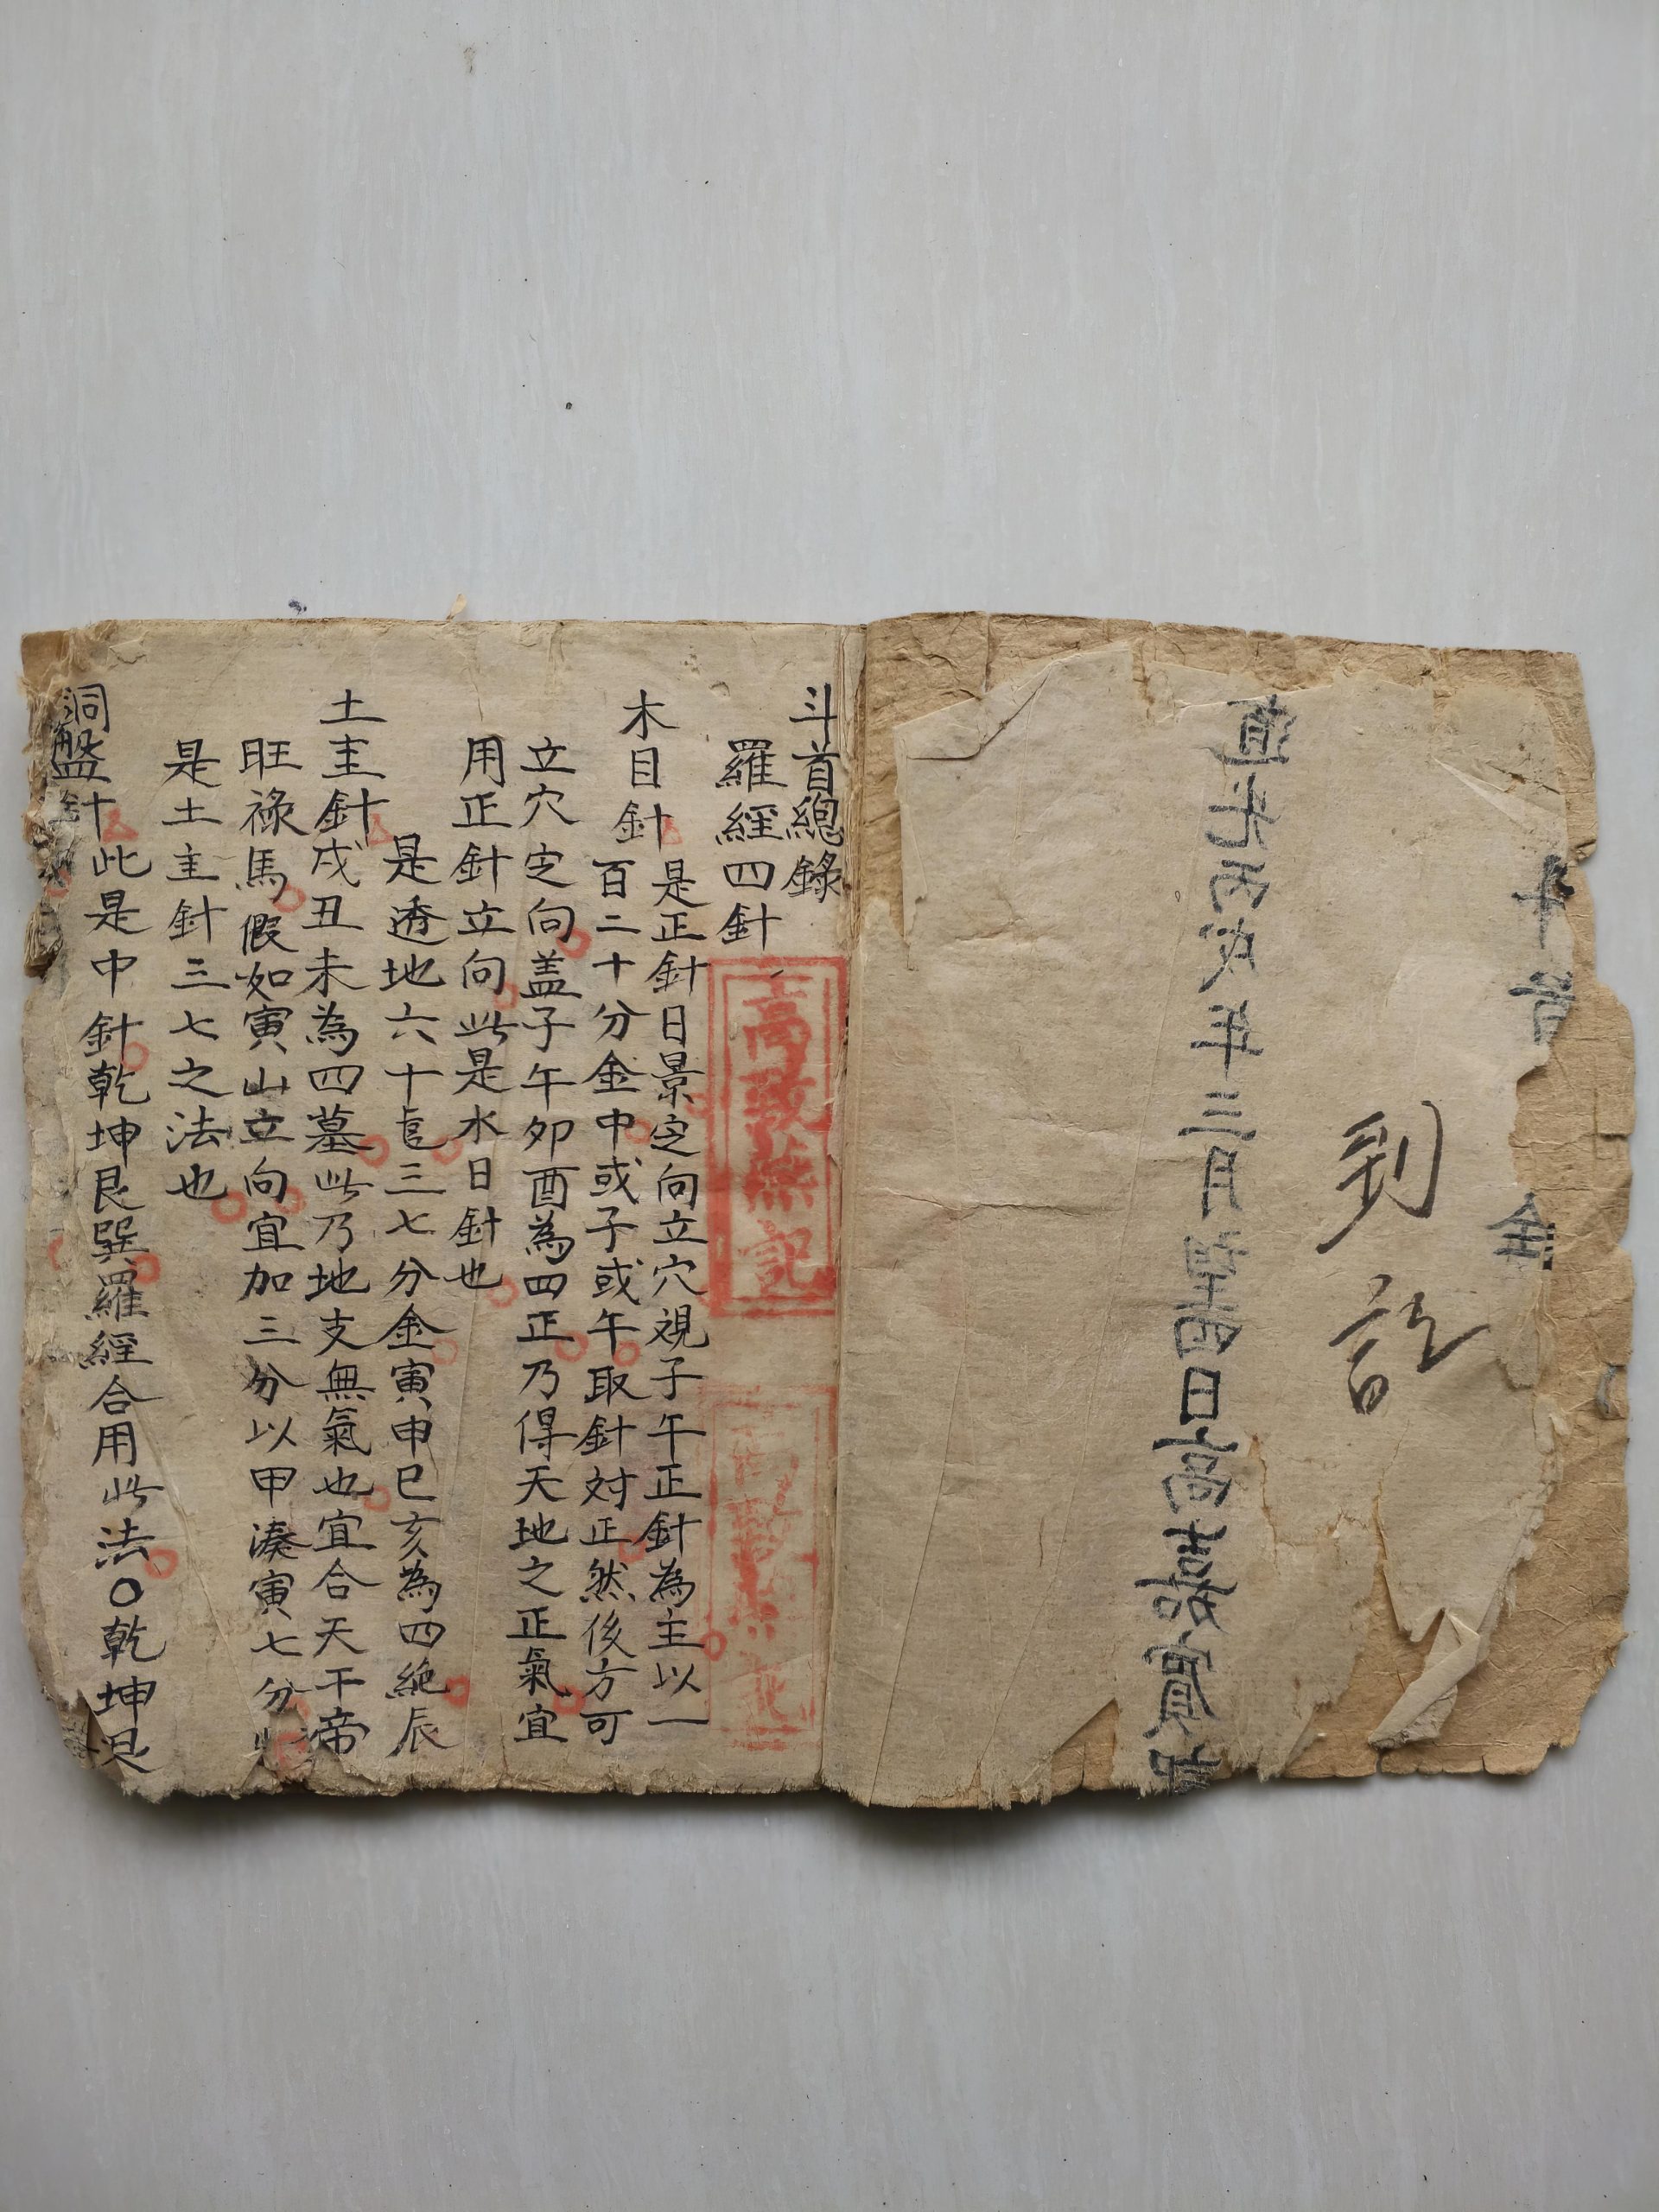 到
訖
斗首
全
道光丙戌年三月望四日高嘉賓
斗首總錄
羅經四針
高
記
木目針是正針日景定向立穴視子午正針為主以一
百二十分金中或子或午取針対正然後方可
立穴定向盖子午卯酉為四正乃得天地之正氣宜
用正針立向此是水日針也
是透地六十三七分金寅申巳亥為四絶辰
土主針戌丑未為四墓此乃地支無氣也宜合天干帝
旺祿馬假如寅山立向宜加三分以甲湊寅七分
是土主針三七之法也
洞盤針此是中針乾坤艮巽羅經合用此法〇乾坤艮